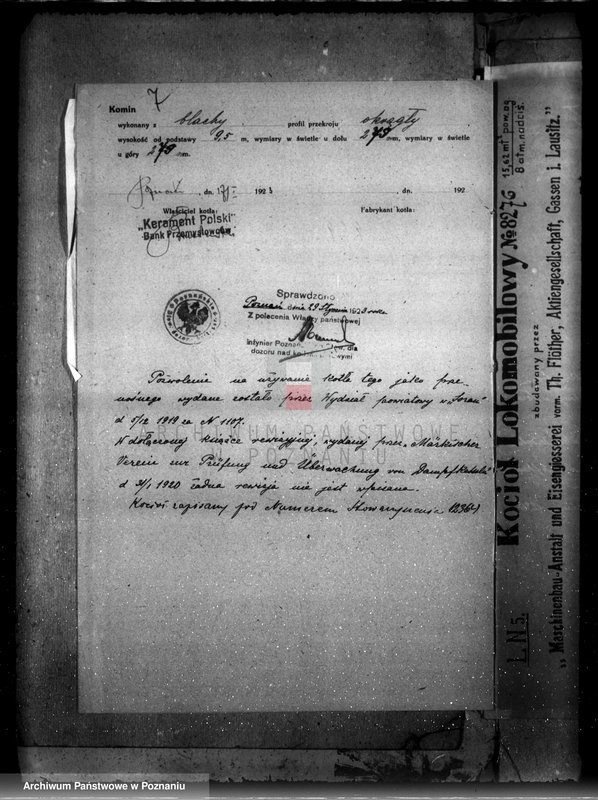 7
Komin
wykonany z blachy, profil przekroju okrągły
wysokość od podstawy 9,5 m, wymiary w świetle u dołu 275 mm, wymiary w świetle
u góry 275 mm.
Poznań, dn. 192 , dn. 192
Właściciel kotła: Fabrykant kotła:
„Kerament Polski"
Bank Przemysłowców
Sprawdzono
Poznań dnia 29 Stycznia 1923 roku
Z polecenia Władzy państwowej
inżynier Poznań dla
dozoru nad kotłami parowymi
Pozwolenie na używanie kotła tego jako prze-
nośnego wydane zostało przez Wydział powiatowy w Żorau
d 5/12 1919 za N 1107.
W dołączonej książce rewizyjnej, wydanej przez „Märkischer
Verein zur Prüfung und Überwachung von Dampfkesseln"
d 3/1 1920 żadna rewizja nie jest wpisana.
Kocioł zapisany pod Numerem Stowarzyszenia 12364
ARCHIWUM PAŃSTWOWE
POZNANIU
L. N 5.
Kocioł Lokomobilowy № 8276
15,62 mt² pow. og
8 atm. nadciś.
zbudowany przez
„Maschinenbau-Anstalt und Eisengiesserei vorm. Th. Flöther, Aktiengesellschaft, Gassen i. Lausitz."
Archiwum Państwowe w Poznaniu